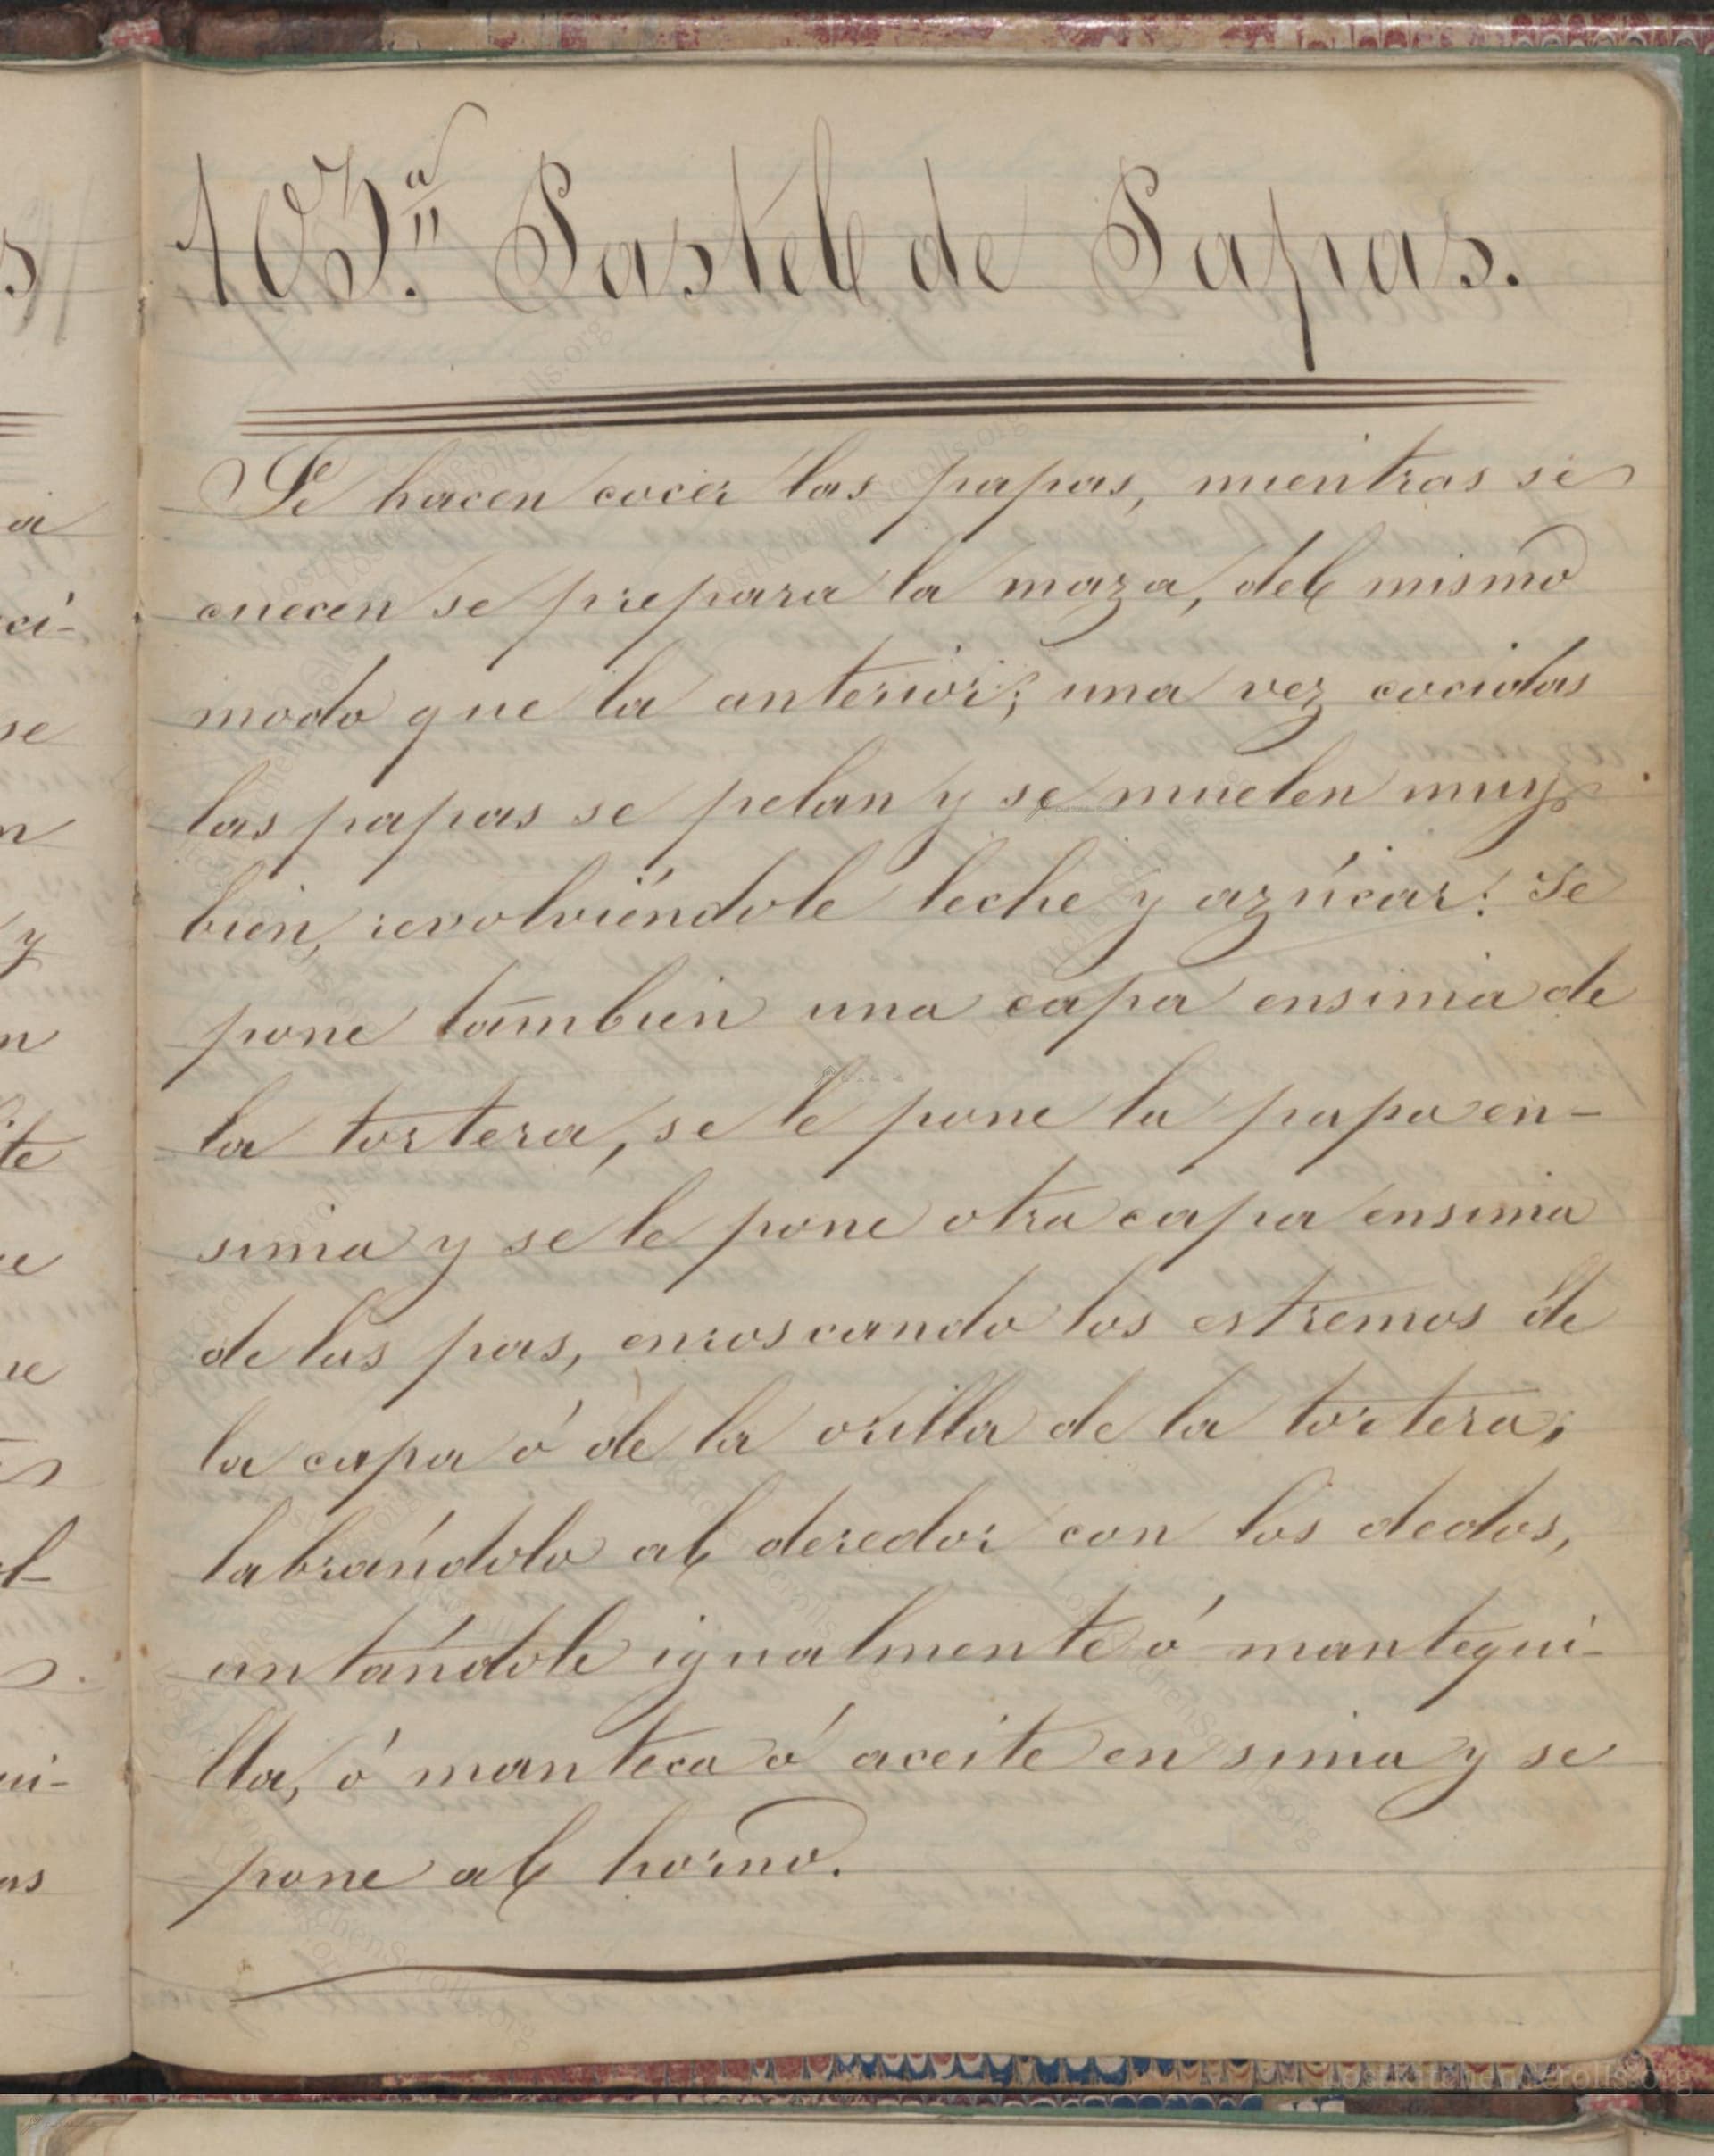 103.ª Pastel de Papas.
Se hacen cocer las papas, mientras se
cuecen se prepara la maza, del mismo
modo que la anterior; una vez cocidas
las papas se pelan y se muelen muy
bien, revolviéndole leche y azúcar: Se
pone tambien una capa ensima de
la tortera, se le pone la papa en-
sima y se le pone otra capa ensima
de las pas, enroscando los estremos de
la capa ó de la orilla de la tortera;
labrándolo al deredor con los dedos,
untándole igualmente ó mantequi-
lla, ó manteca ó aceite en sima y se
pone al horno.